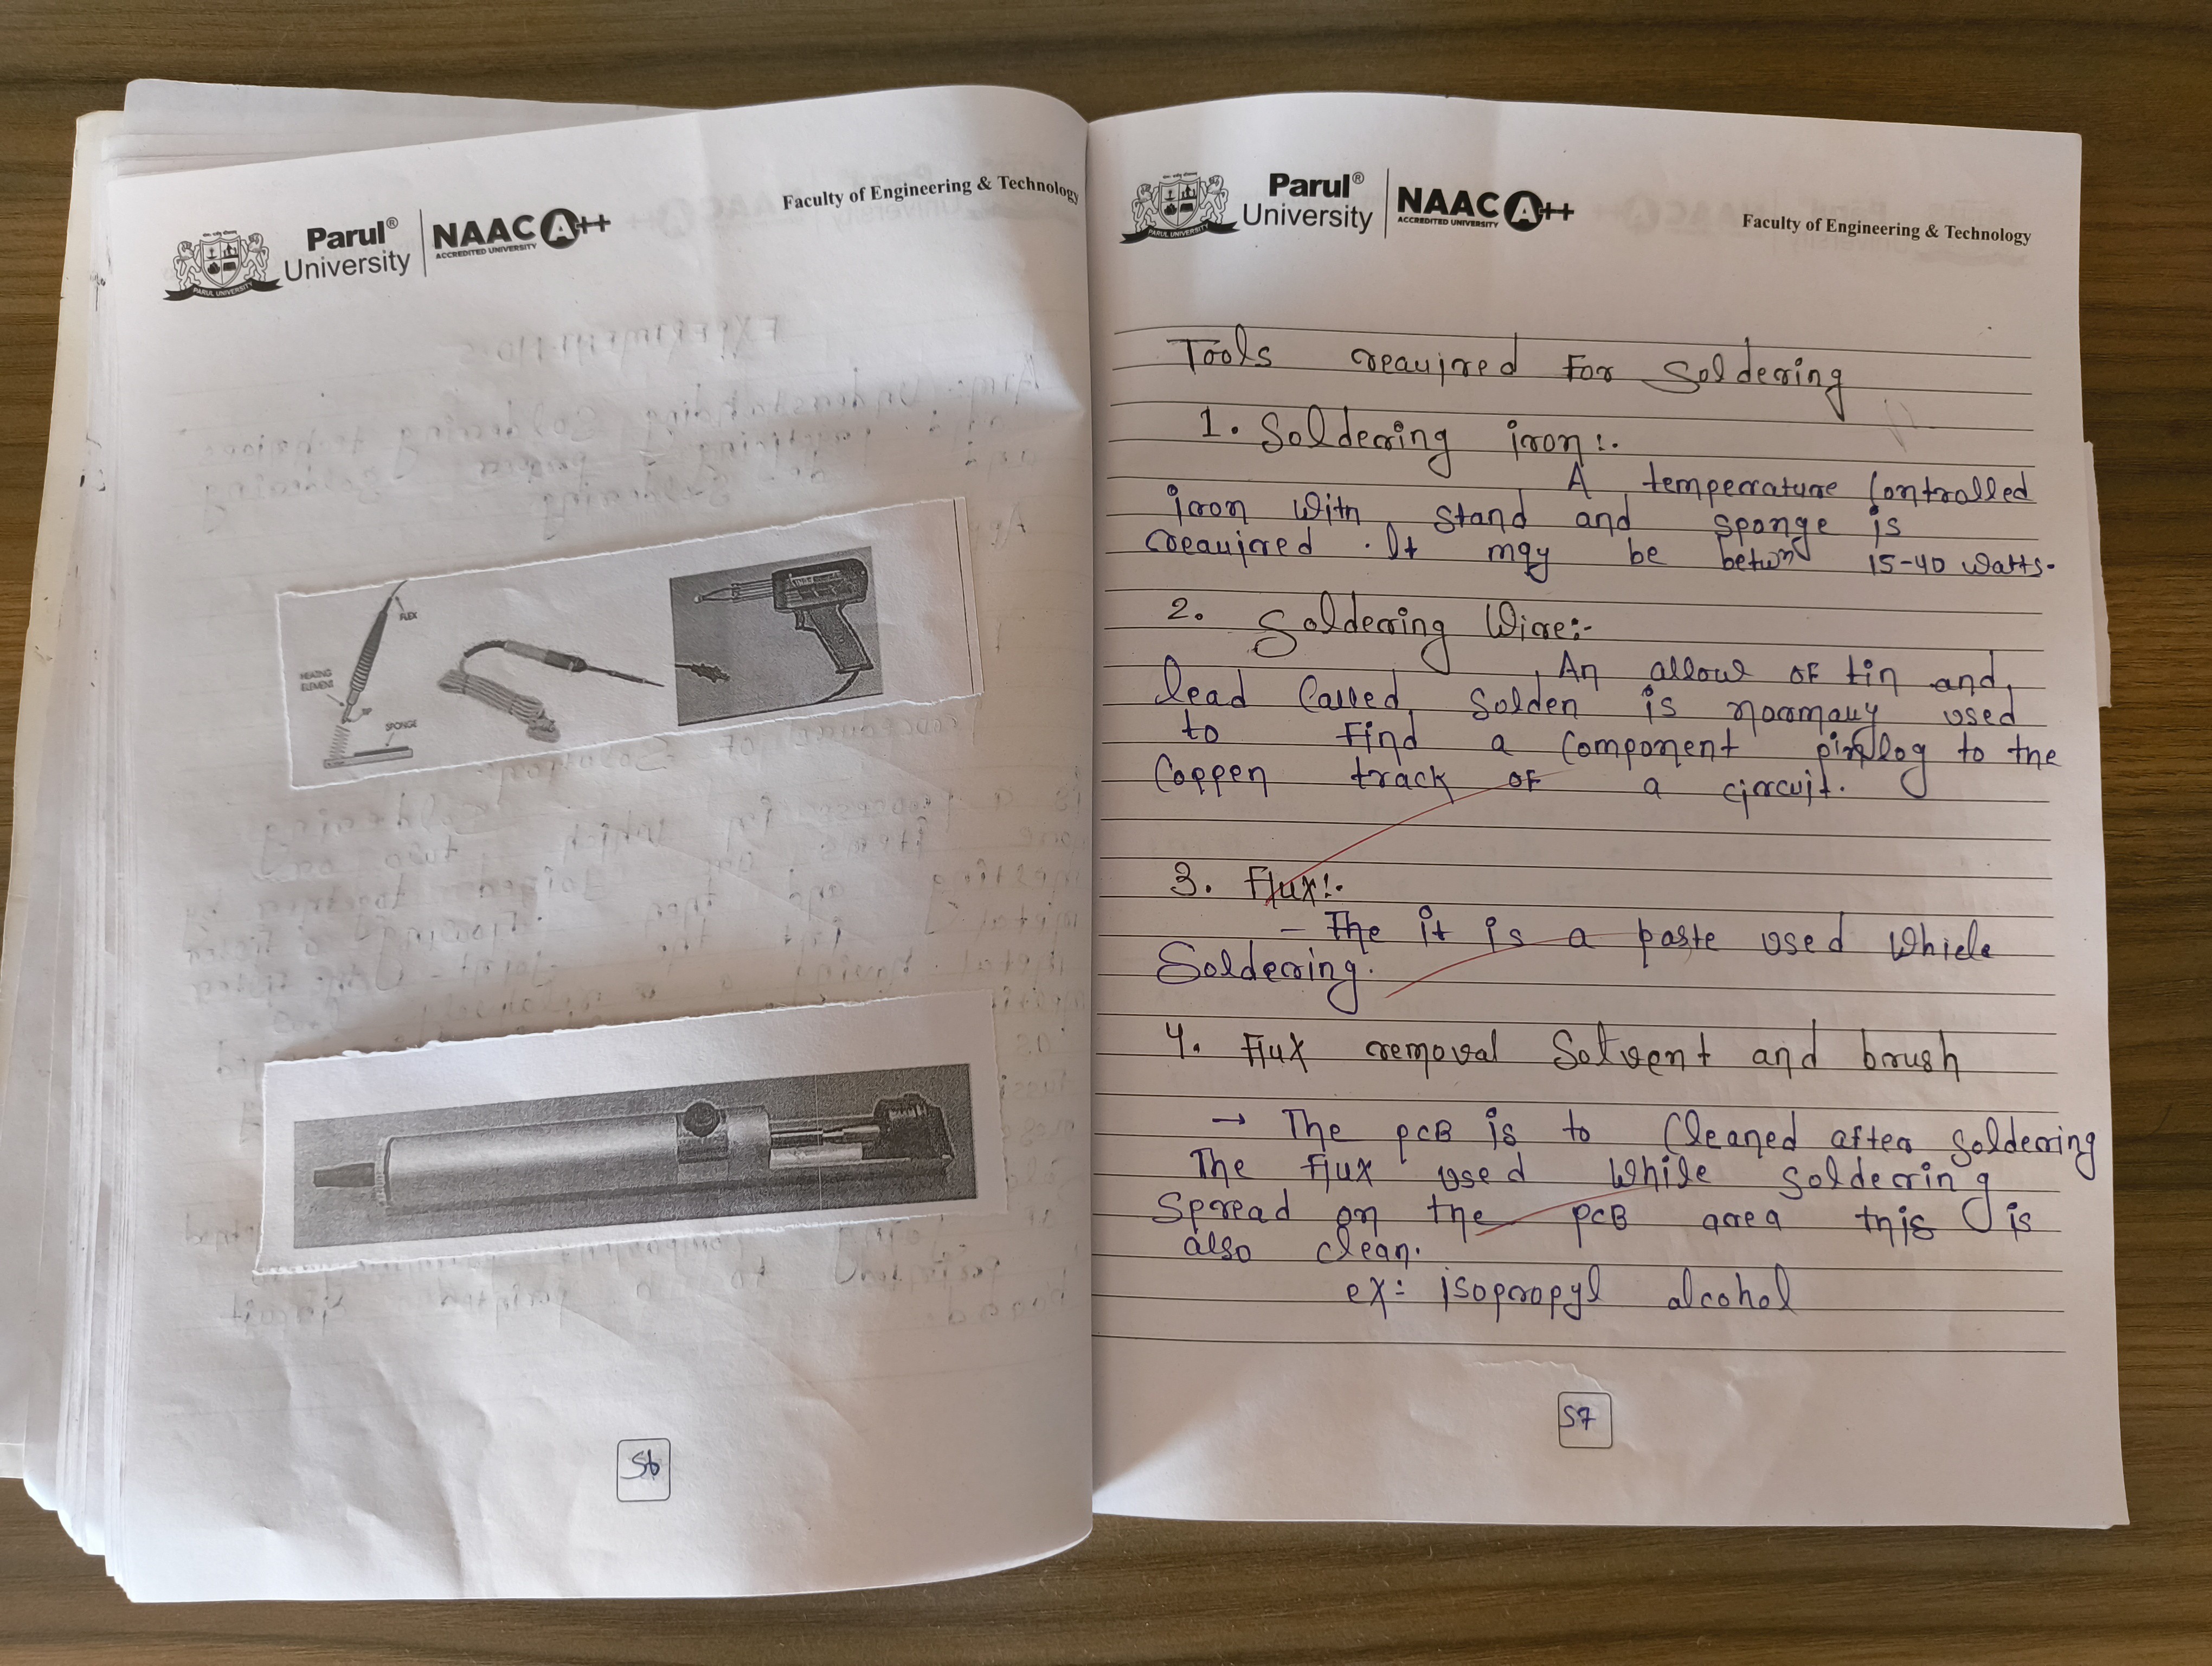 Parul®
University
NAAC A++
ACCREDITED UNIVERSITY
PARUL UNIVERSITY
Faculty of Engineering & Technology
FLEX
HEATING
ELEMENT
TIP
SPONGE
56
Parul®
University
NAAC A++
ACCREDITED UNIVERSITY
PARUL UNIVERSITY
Faculty of Engineering & Technology
Tools reauired For Soldering
1. Soldering iron:.
A temperature Controlled
iron with stand and sponge is
reauired. It may be betwn 15-40 watts.
2. Soldering Wire:-
An allow OF tin and
lead Called, Solden is normally used
to Find a Component to the
Coppen track OF a circuit.
3. Flux:.
- The it is a paste used While
Soldering.
4. Flux removal Solvent and brush
→ The PCB is to Cleaned after Soldering
The Flux used While Soldering
Spread on the PCB area this is
also clean.
ex: isopropyl alcohol
57